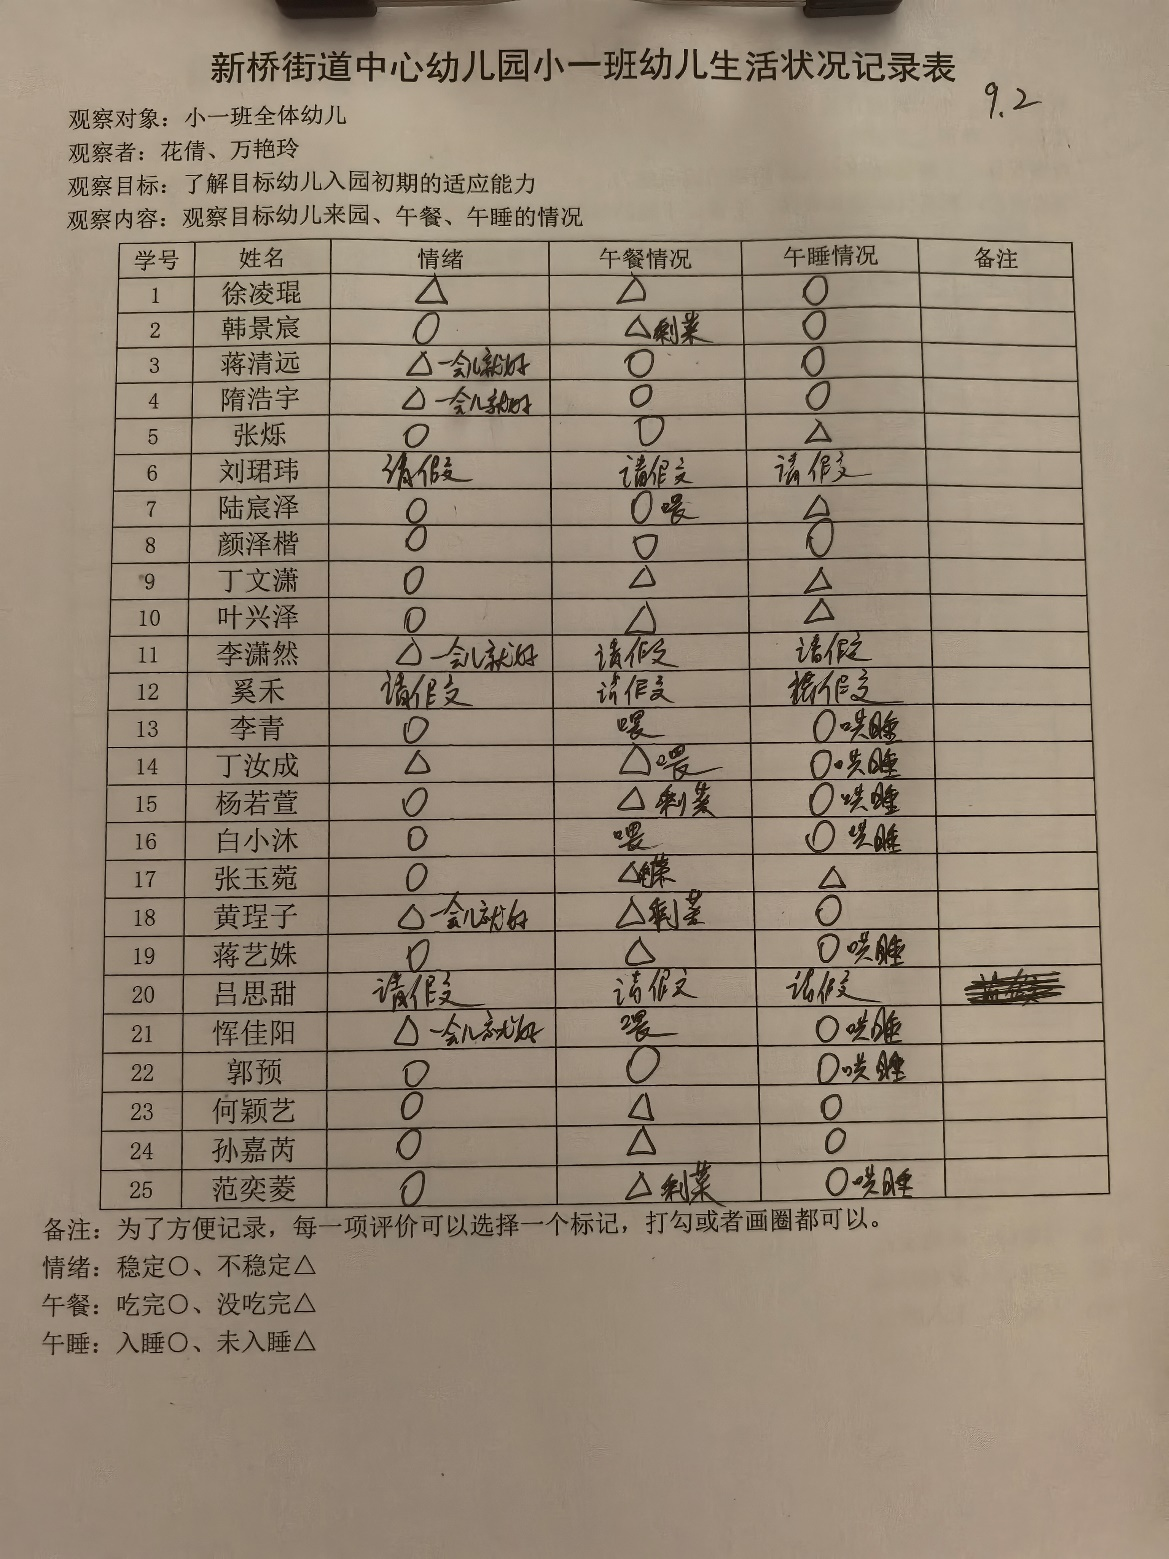 新桥街道中心幼儿园小一班幼儿生活状况记录表
9.2
观察对象：小一班全体幼儿
观察者：花倩、万艳玲
观察目标：了解目标幼儿入园初期的适应能力
观察内容：观察目标幼儿来园、午餐、午睡的情况
学号 姓名 情绪 午餐情况 午睡情况 备注
1 徐凌琨 △ △ ○
2 韩景宸 ○ △剩菜 ○
3 蒋清远 △一会儿就好 ○ ○
4 隋浩宇 △一会儿就好 ○ ○
5 张烁 ○ ○ △
6 刘珺玮 请假 请假 请假
7 陆宸泽 ○ ○喂 △
8 颜泽楷 ○ ○ ○
9 丁文潇 ○ △ △
10 叶兴泽 ○ △ △
11 李潇然 △一会儿就好 请假 请假
12 奚禾 请假 请假 请假
13 李青 ○ 喂 ○哄睡
14 丁汝成 △ △喂 ○哄睡
15 杨若萱 ○ △剩菜 ○哄睡
16 白小沐 ○ 喂 ○哄睡
17 张玉菀 ○ △剩菜 △
18 黄珵子 △一会儿就好 △剩菜 ○
19 蒋艺姝 ○ △ ○哄睡
20 吕思甜 请假 请假 请假
21 恽佳阳 △一会儿就好 喂 ○哄睡
22 郭预 ○ ○ ○哄睡
23 何颖艺 ○ △ ○
24 孙嘉芮 ○ △ ○
25 范奕菱 ○ △剩菜 ○哄睡
备注：为了方便记录，每一项评价可以选择一个标记，打勾或者画圈都可以。
情绪：稳定○、不稳定△
午餐：吃完○、没吃完△
午睡：入睡○、未入睡△